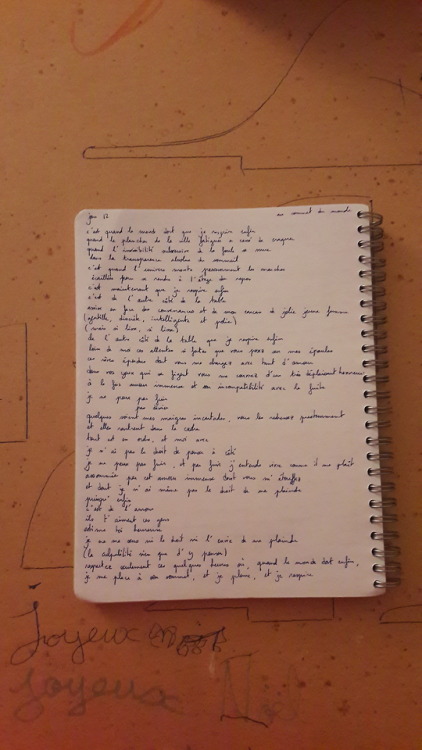 jour 12 au sommet du monde
c'est quand le monde dort que je respire enfin
quand le plancher de la ville fatigué a cessé de craquer
quand l'invisibilité de la foule a
dans la transparence absolue du sommeil
c'est quand l'univers monte les marches
pour se rendre à l'étage du repos
c'est maintenant que je respire enfin
c'est de l'autre côté de la table
en face des convenances et de mon carcan de jolie jeune femme
(gentille, discrète, intelligente et polie)
(mais si lisse, si lisse)
de l'autre côté de la table que je respire enfin
loin de mes attentes si fortes que vous posez sur mes épaules
ces épaules dont vous me chargez avec tant d'amour
dans vos yeux qui se figent vous me coincez d'un très déplaisant
à la fois amour immense et son incompatibilité avec la fuite
je ne peux pas fuir
quelques soient mes maigres incartades, vous les redressez
et elles rentrent dans le cadre
tout est en ordre, et moi avec
je n'ai pas le droit de passer à côté
je ne peux pas fuir, et par fuir j'entends vivre comme il me plaît
par cet amour immense dont vous m'étouffez
et dont je n'ai même pas le droit de me plaindre
puisqu'enfin
c'est de l'amour
ils t'aiment ces gens
estime toi heureuse
je ne me sens ni le droit ni l'envie de me plaindre
(la culpabilité rien que d'y penser)
respectez seulement ces quelques heures où, quand le monde dort enfin,
je me place à son sommet, et je pleure, et je respire
Joyeux
Joyeux Noël